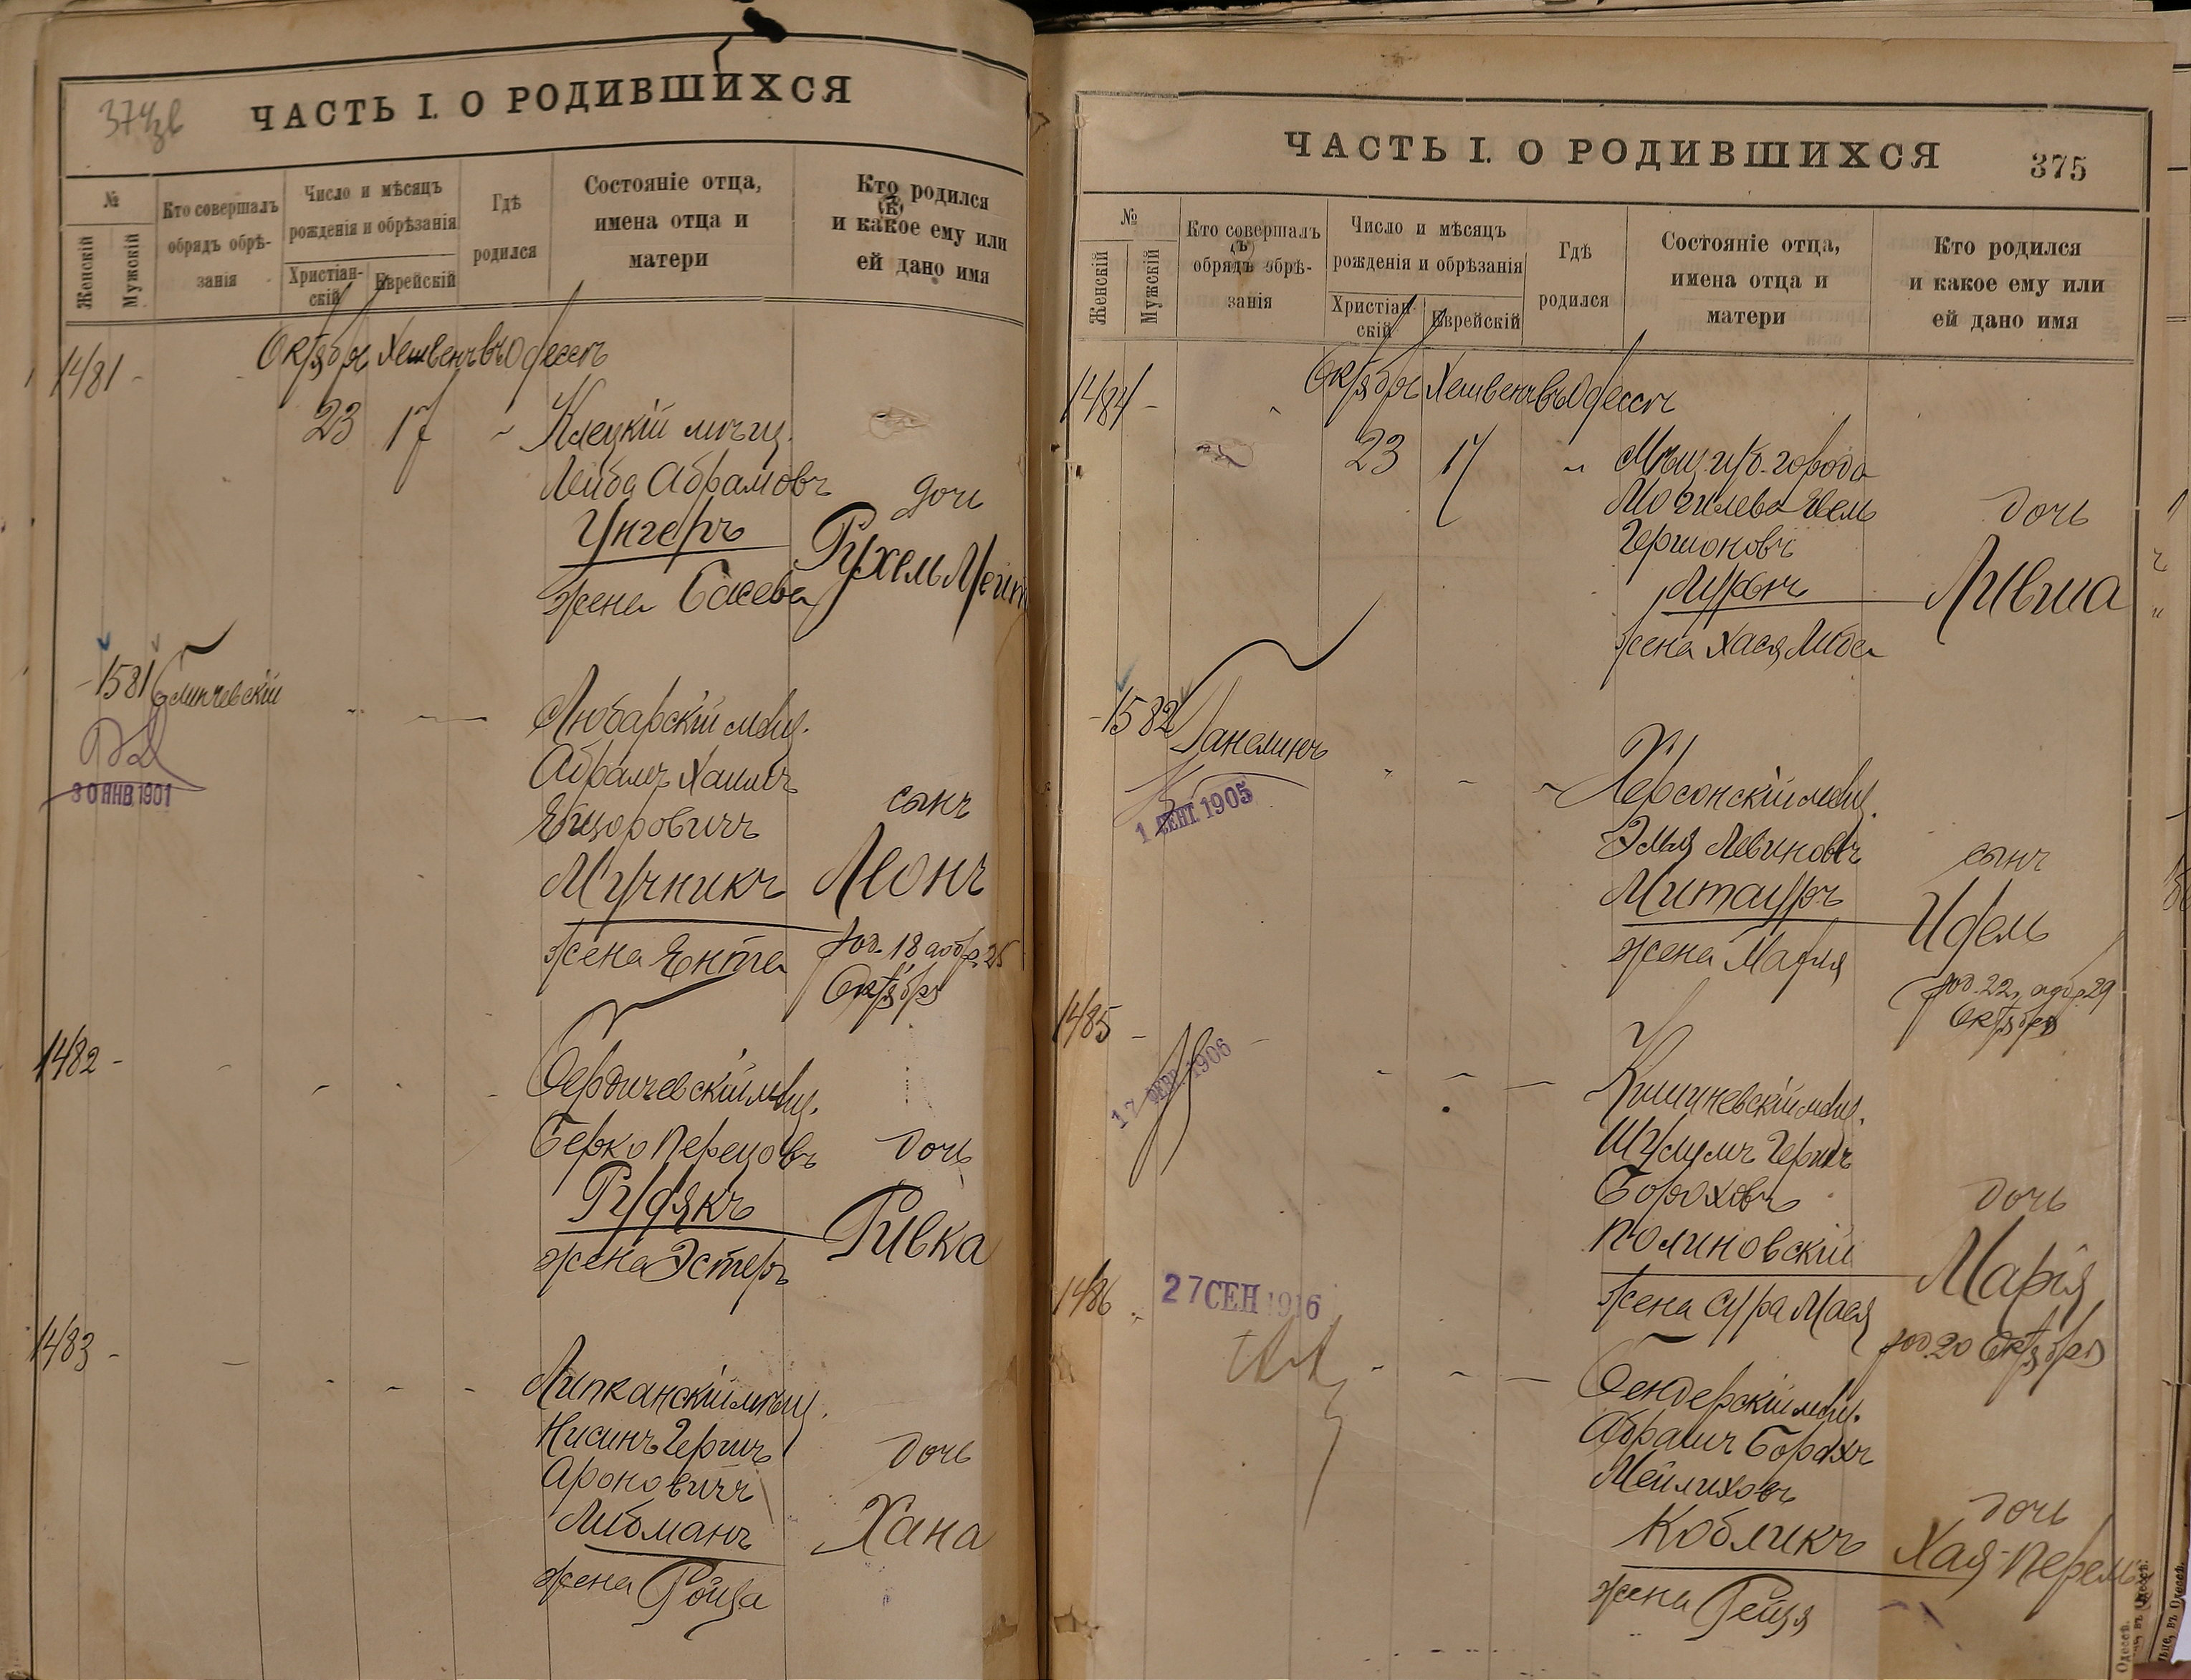 ЧАСТЬ I. О РОДИВШИХСЯ
№
Женскій
Мужскій
Кто совершалъ
обрядъ обрѣ-
занія
Число и мѣсяцъ
рожденія и обрѣзанія
Христіан-
скій
Еврейскій
Гдѣ
родился
Состояніе отца,
имена отца и
матери
Кто родился
и какое ему или
ей дано имя
1481 -
Октябрь Хешвенъ въ Одессѣ
23 17
Клецкій мѣщ.
Лейба Абрамовъ
Унгеръ
жена Басева
дочь
Рухель
1581
30 ЯНВ. 1901
Любарскій мѣщ.
Абрамъ Хаимъ
Мучникъ
жена Ента
сынъ
Леонъ
род. 18 а обр. 25
Октября
1482 -
Бердичевскій мѣщ.
Берко Перецовъ
Рудякъ
жена Эстеръ
дочь
Ривка
1483 -
Липканскій мѣщ.
Нисинъ Гершъ
Ароновичъ
Либманъ
жена Ройза
дочь
Хана
ЧАСТЬ I. О РОДИВШИХСЯ 375
№
Женскій
Мужскій
Кто совершалъ
обрядъ обрѣ-
занія
Число и мѣсяцъ
рожденія и обрѣзанія
Христіан-
скій
Еврейскій
Гдѣ
родился
Состояніе отца,
имена отца и
матери
Кто родился
и какое ему или
ей дано имя
1484 -
Октябрь Хешвенъ въ Одессѣ
23 17
Мѣщ. города
Могилева
Гершоновъ
жена Хася
дочь
1582
1 СЕНТ 1905
Херсонскій мѣщ.
Эля Левиновъ
Митауръ
жена Марія
сынъ
Идель
род. 22, а обр. 29
Октября
1485 -
17 ФЕВР. 1906
Кишиневскій мѣщ.
Шулимъ Гершъ
Бороховъ
Полиновскій
жена Сура Мася
дочь
Марія
род. 20 Октября
1486
27 СЕН 1916
Бендерскій мѣщ.
Абрамъ Борохъ
Мейлиховъ
Кобликъ
жена Рейзя
дочь
Хая-Перель